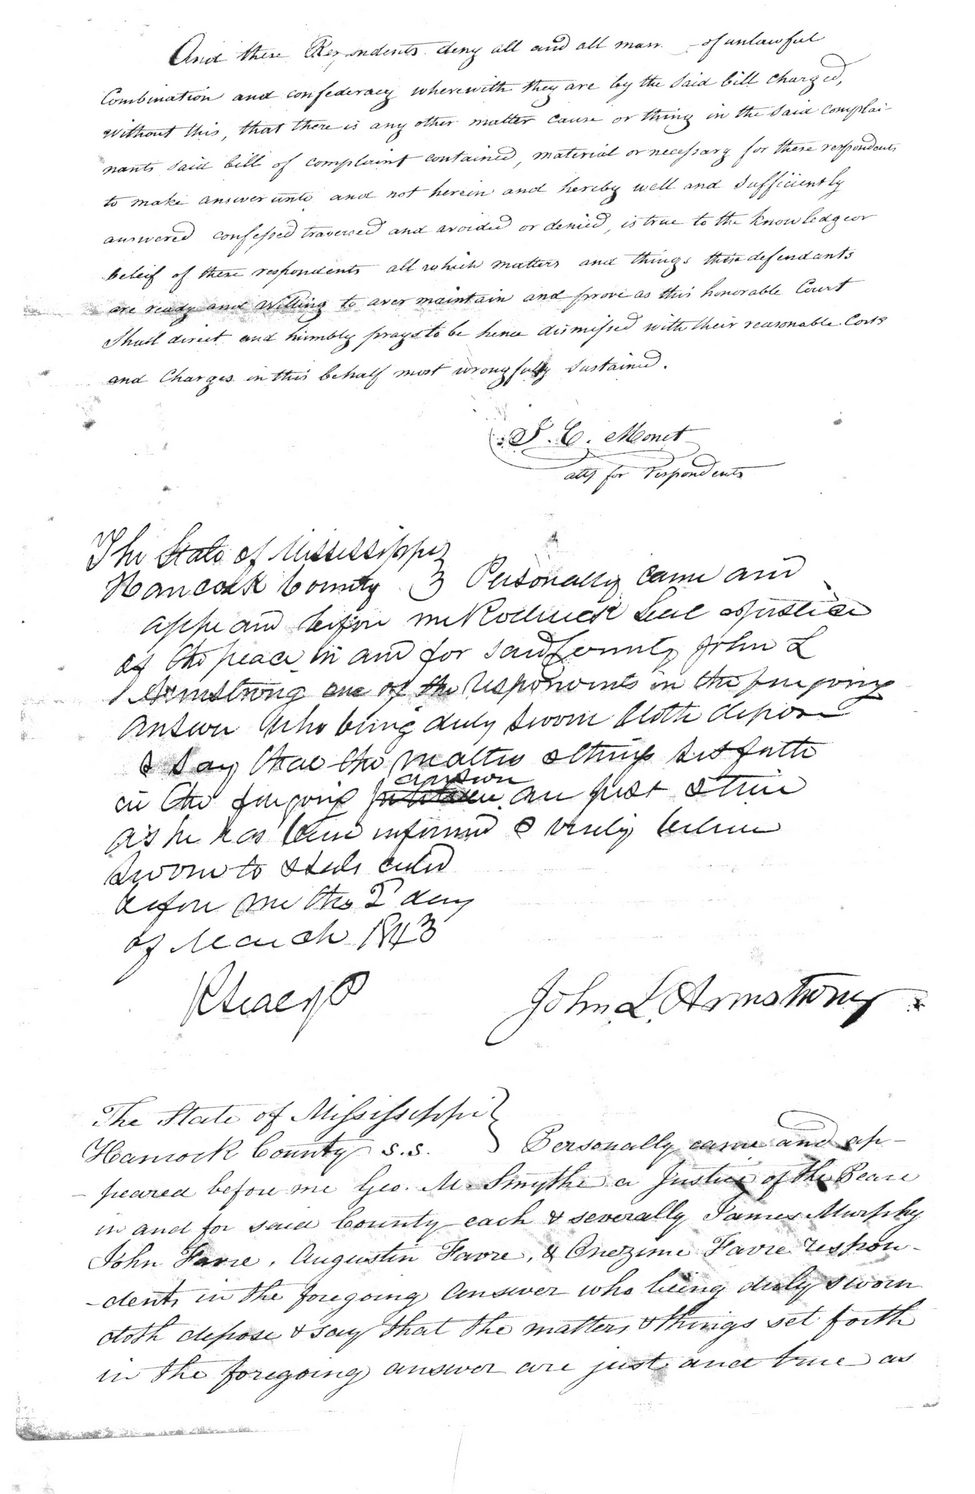 And these Respondents deny all and all man of unlawful
Combination and confederacy wherewith they are by the said bill charged,
without this, that there is any other matter cause or thing in the said complai-
nants said bill of complaint contained, material or necessary for these respondents
to make answer unto and not herein and hereby well and sufficiently
answered confessed traversed and avoided or denied, is true to the knowledge or
beleif of these respondents all which matters and things these defendants
are ready and willing to aver maintain and prove as this honorable Court
Shall direct and humbly prays to be hence dismissed with their reasonable Costs
and Charges in this behalf most wrongfully sustained.
J. C. Monet
atty for Respondents
The State of Mississippi
Hancock County } Personally came and
appeard before me Roderick Seal a Justice
of the peace in and for said County John L
Armstrong one of the respondents in the foregoing
answer who being duly sworn doth depose
& say that the matters & things set forth
in the foregoing answer are just & true
as he has been informed & verily believe
Sworn to & subscribed
before me the 2d day
of March 1843
R Seal JP
John L. Armstrong
The State of Mississippi }
Hancock County S.S. } Personally came and ap-
-peared before me Geo. M. Smythe a Justice of the Peace
in and for said County each & severally James Murphy
John Favre, Augustin Favre, & Onezime Favre respon-
-dents in the foregoing answer who being duly sworn
doth depose & say that the matters & things set forth
in the foregoing answer are just and true as